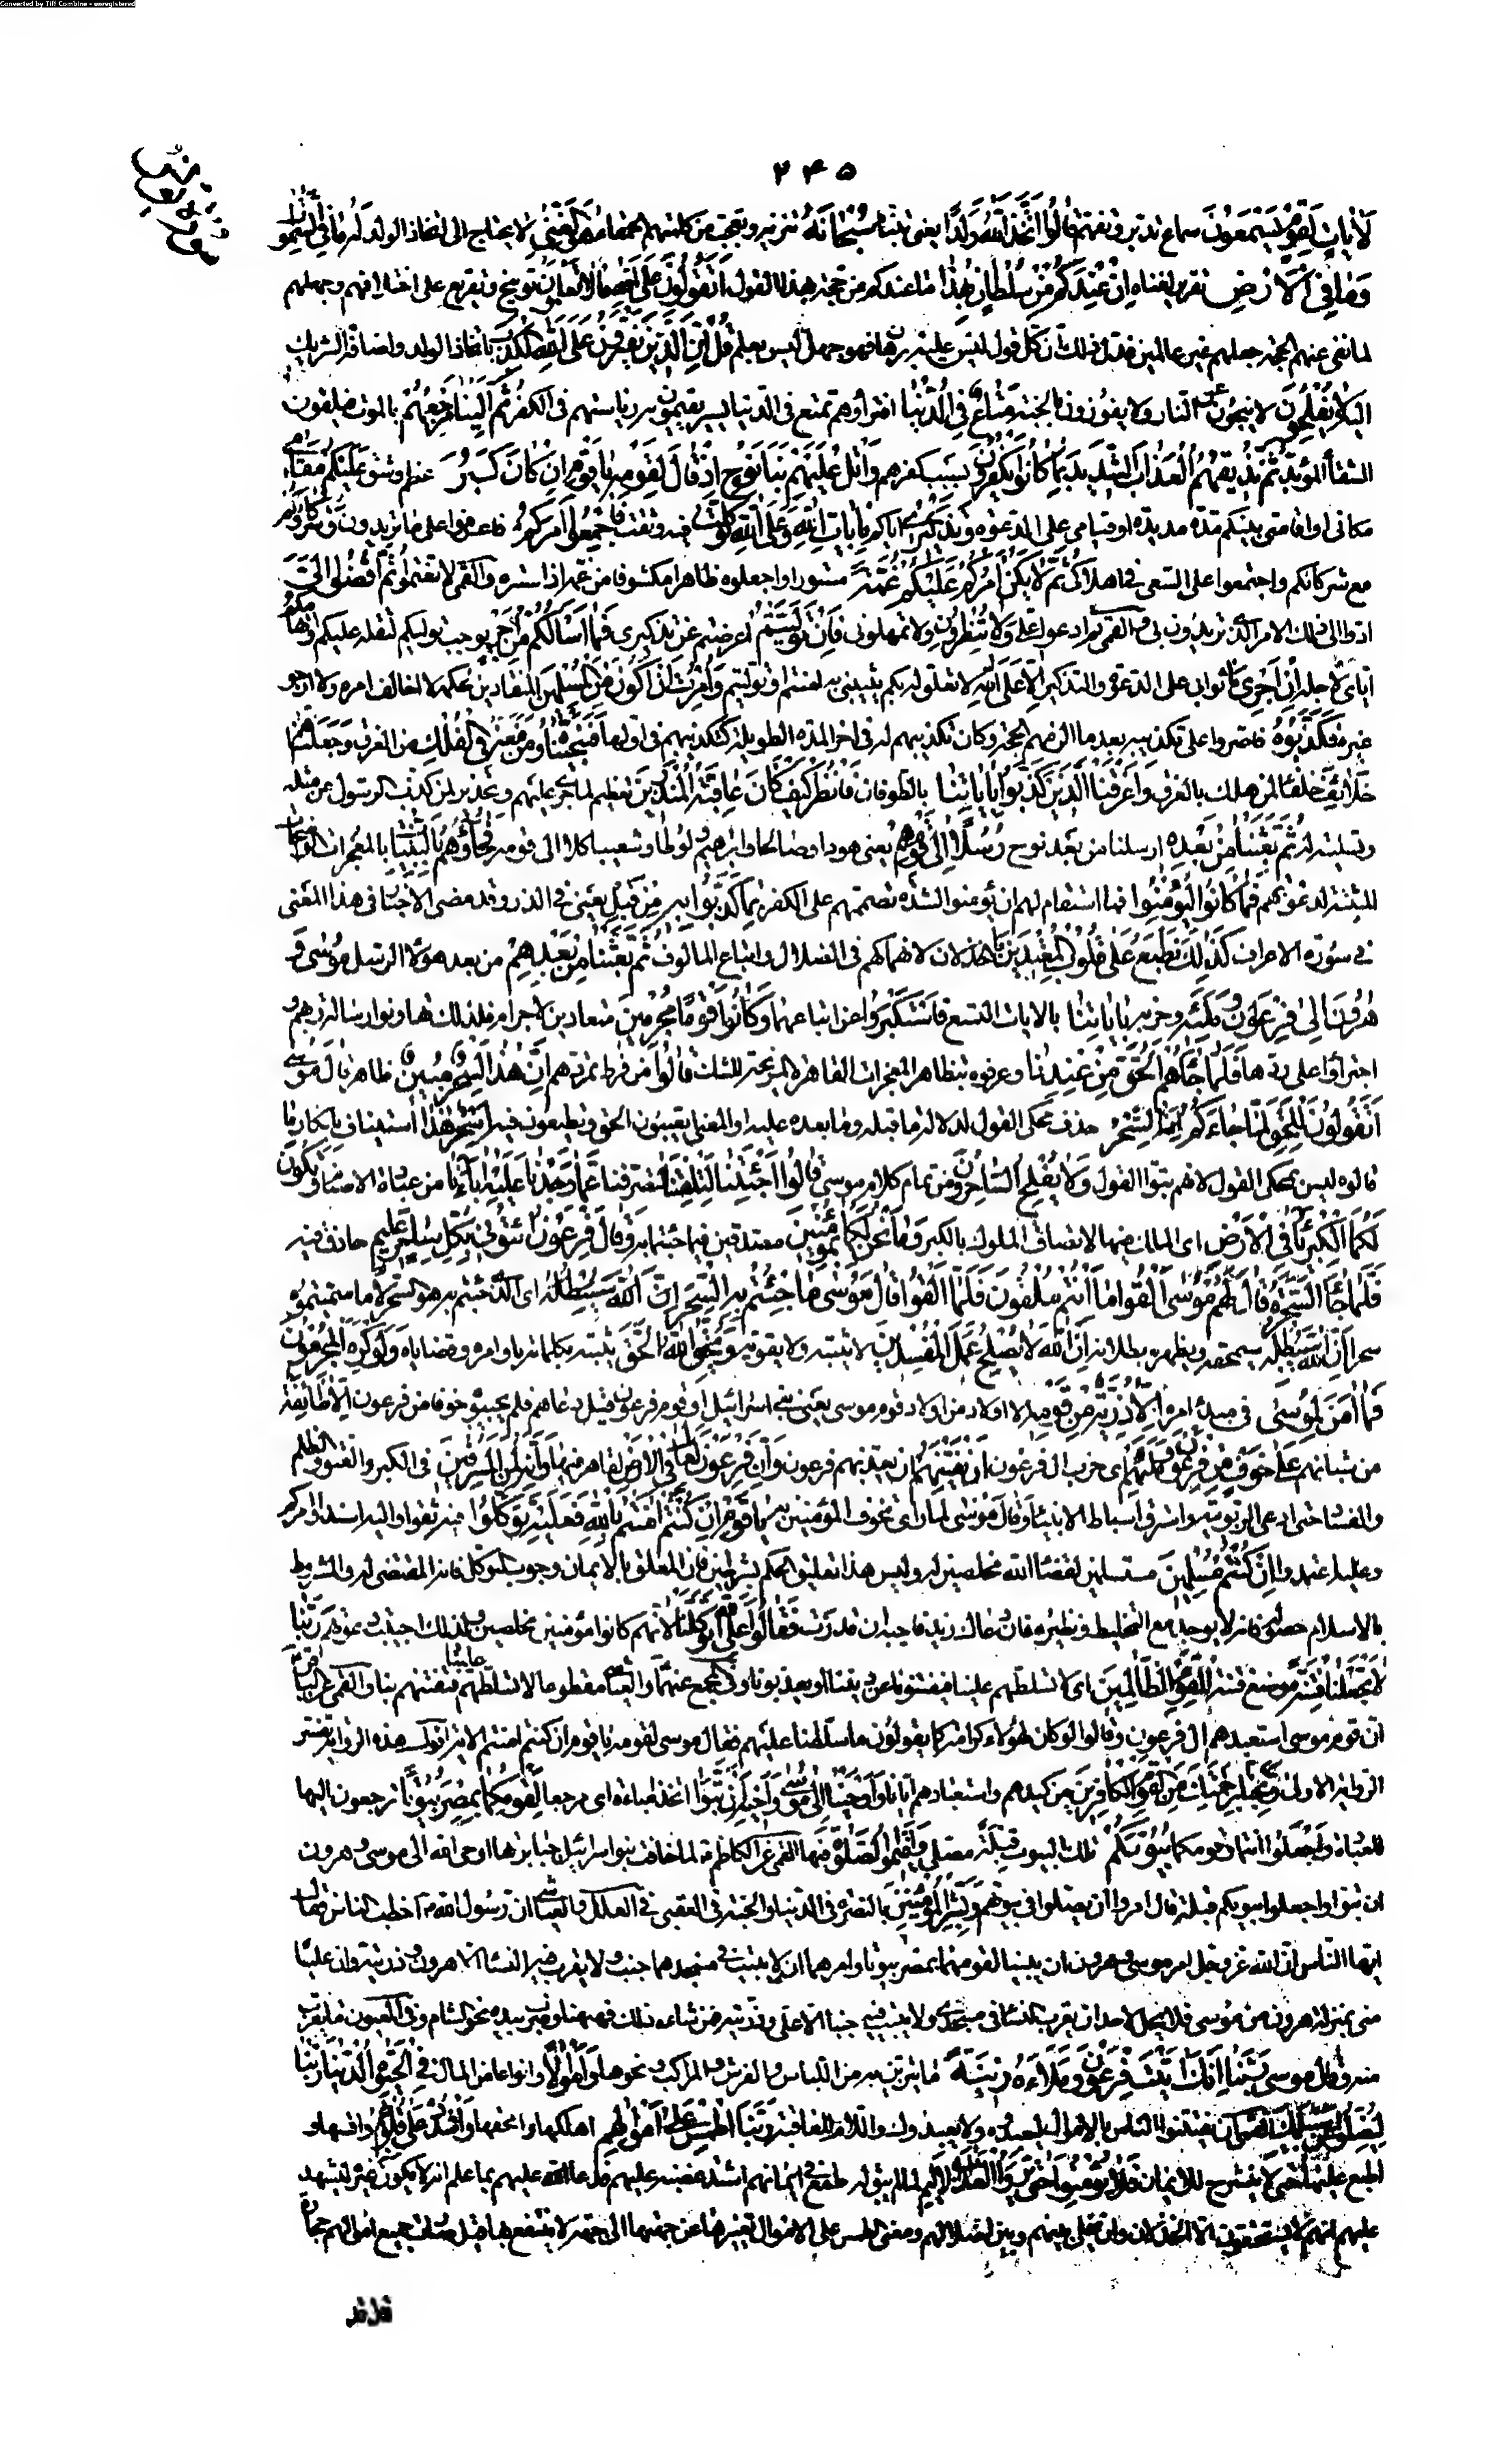 Converted by Tiff Combine - unregistered
٢٤٥
سورة يونس
لَآيَاتٍ لِقَوْمٍ يَسْمَعُونَ سماع تدبر وتفهم قَالُوا اتَّخَذَ اللهُ وَلَدًا يعنى تبنّاه سُبْحَانَهُ تنزيه وتعجب من كلمتهم الحمقاء هُوَ الْغَنِيُّ لا يحتاج الى اتخاذ الولد لَهُ مَا فِي السَّمٰوَاتِ
وَمَا فِي الْأَرْضِ تقرير لغناه اِنْ عِنْدَكُمْ مِنْ سُلْطَانٍ بِهٰذَا ما عندكم من حجة بهذا القول اَتَقُولُونَ عَلَى اللهِ مَا لَا تَعْلَمُونَ توبيخ وتقريع على اختلافهم وجهلهم
لما نفى عنهم الحجة جعلهم غير عالمين فدل ذلك ان كل قول ليس عليه برهان فهو جهل ليس بعلم قُلْ اِنَّ الَّذِينَ يَفْتَرُونَ عَلَى اللهِ الْكَذِبَ باتخاذ الولد واضافة الشريك
اليه لَا يُفْلِحُونَ لا ينجون من النار ولا يفوزون بالجنة مَتَاعٌ فِي الدُّنْيَا افتراؤهم تمتع فى الدنيا يسير يقيمون به رياستهم فى الكفر ثُمَّ اِلَيْنَا مَرْجِعُهُمْ بالموت فيلقون
الشقاء المؤبد ثُمَّ نُذِيقُهُمُ الْعَذَابَ الشَّدِيدَ بِمَا كَانُوا يَكْفُرُونَ بسبب كفرهم وَاتْلُ عَلَيْهِمْ نَبَأَ نُوحٍ اِذْ قَالَ لِقَوْمِهِ يَا قَوْمِ اِنْ كَانَ كَبُرَ عظم وشق عَلَيْكُمْ مَقَامِي
مكانى او اقامتى بينكم مدة مديدة او قيامى على الدعوة وَتَذْكِيرِي اياكم بِآيَاتِ اللهِ فَعَلَى اللهِ تَوَكَّلْتُ فبه وثقت فَأَجْمِعُوا اَمْرَكُمْ فاعزموا على ما تريدون وَشُرَكَاءَكُمْ
مع شركائكم واجتمعوا على السعى فى اهلاكى ثُمَّ لَا يَكُنْ اَمْرُكُمْ عَلَيْكُمْ غُمَّةً مستورا واجعلوه ظاهرا مكشوفا من غمه اذا ستره والقمى لا تغتموا ثُمَّ اقْضُوا اِلَيَّ
ادوا الى ذلك الامر الذى تريدون بى والقمى ثم ادعوا على وَلَا تُنْظِرُونِ ولا تمهلونى فَاِنْ تَوَلَّيْتُمْ اعرضتم عن تذكيرى فَمَا سَأَلْتُكُمْ مِنْ اَجْرٍ يوجب توليكم لثقله عليكم واتهامكم
اياى لاجله اِنْ اَجْرِيَ ما ثوابى على الدعوة والتذكير اِلَّا عَلَى اللهِ لا تعلق له بكم يثيبنى به امنتم او توليتم وَاُمِرْتُ اَنْ اَكُونَ مِنَ الْمُسْلِمِينَ المنقادين لحكمه لا اخالف امره ولا ارجو
غيره فَكَذَّبُوهُ فاصروا على تكذيبه بعد ما الزمهم الحجة وكان تكذيبهم له فى اخر المدة الطويلة كتكذيبهم فى اولها فَنَجَّيْنَاهُ وَمَنْ مَعَهُ فِي الْفُلْكِ من الغرق وَجَعَلْنَاهُمْ
خَلَائِفَ خلفاء لمن هلك بالغرق وَاَغْرَقْنَا الَّذِينَ كَذَّبُوا بِآيَاتِنَا بالطوفان فَانْظُرْ كَيْفَ كَانَ عَاقِبَةُ الْمُنْذَرِينَ تعظيم لما جرى عليهم وتحذير لمن كذب الرسول عن مثله
وتسلية له ثُمَّ بَعَثْنَا مِنْ بَعْدِهِ ارسلنا من بعد نوح رُسُلًا اِلَى قَوْمِهِمْ يعنى هودا وصالحا وابراهيم ولوطا وشعيبا كلا الى قومه فَجَاؤُهُمْ بِالْبَيِّنَاتِ بالمعجزات الواضحات
المثبتة لدعوتهم فَمَا كَانُوا لِيُؤْمِنُوا فما استقام لهم ان يؤمنوا لشدة تصممهم على الكفر بِمَا كَذَّبُوا بِهِ مِنْ قَبْلُ يعنى فى الذر وقد مضى الاخبار فى هذا المعنى
فى سورة الاعراف كَذٰلِكَ نَطْبَعُ عَلَى قُلُوبِ الْمُعْتَدِينَ بالخذلان لانهماكهم فى الضلال واتباع المألوف ثُمَّ بَعَثْنَا مِنْ بَعْدِهِمْ من بعد هؤلاء الرسل مُوسَى وَ
هٰرُونَ اِلَى فِرْعَوْنَ وَمَلَئِهِ وحزبه بِآيَاتِنَا بالايات التسع فَاسْتَكْبَرُوا عن اتباعهما وَكَانُوا قَوْمًا مُجْرِمِينَ معتادين الاجرام فلذلك تهاونوا رسالة ربهم و
اجترأوا على ردها فَلَمَّا جَاءَهُمُ الْحَقُّ مِنْ عِنْدِنَا وعرفوه بتظاهر المعجزات القاهرة المزيحة للشك قَالُوا من فرط تمردهم اِنَّ هٰذَا لَسِحْرٌ مُبِينٌ ظاهر قَالَ مُوسَى
اَتَقُولُونَ لِلْحَقِّ لَمَّا جَاءَكُمْ انه لسحر حذف محكى القول لدلالة ما قبله وما بعده عليه او المعنى اتعيبون الحق وتطعنون فيه اَسِحْرٌ هٰذَا استيناف بانكار ما
قالوه ليس بمحكى القول لانهم بتوا القول وَلَا يُفْلِحُ السَّاحِرُونَ من تمام كلام موسى قَالُوا اَجِئْتَنَا لِتَلْفِتَنَا لتصرفنا عَمَّا وَجَدْنَا عَلَيْهِ آبَاءَنَا من عبادة الاصنام وَتَكُونَ
لَكُمَا الْكِبْرِيَاءُ فِي الْأَرْضِ اى الملك فيها لاتصاف الملوك بالكبر وَمَا نَحْنُ لَكُمَا بِمُؤْمِنِينَ مصدقين فيما جئتما به وَقَالَ فِرْعَوْنُ ائْتُونِي بِكُلِّ سَاحِرٍ عَلِيمٍ حاذق فيه
فَلَمَّا جَاءَ السَّحَرَةُ قَالَ لَهُمْ مُوسَى اَلْقُوا مَا اَنْتُمْ مُلْقُونَ فَلَمَّا اَلْقَوْا قَالَ مُوسَى مَا جِئْتُمْ بِهِ السِّحْرُ اِنَّ اللهَ سَيُبْطِلُهُ اى الذى جئتم به هو السحر لا ما سميتموه
سحرا اِنَّ اللهَ سَيُبْطِلُهُ سيمحقه ويظهر بطلانه اِنَّ اللهَ لَا يُصْلِحُ عَمَلَ الْمُفْسِدِينَ لا يثبته ولا يقويه وَيُحِقُّ اللهُ الْحَقَّ يثبته بِكَلِمَاتِهِ باوامره وقضاياه وَلَوْ كَرِهَ الْمُجْرِمُونَ
فَمَا آمَنَ لِمُوسَى فى مبدء امره اِلَّا ذُرِّيَّةٌ مِنْ قَوْمِهِ الا اولاد من اولاد قوم موسى يعنى بنى اسرائيل او قوم فرعون قيل دعاهم فلم يجيبوه خوفا من فرعون الا طائفة
من شبانهم عَلَى خَوْفٍ مِنْ فِرْعَوْنَ وَمَلَئِهِمْ اى حزب ال فرعون اَنْ يَفْتِنَهُمْ ان يعذبهم فرعون وَاِنَّ فِرْعَوْنَ لَعَالٍ فِي الْأَرْضِ لقاهر فيها وَاِنَّهُ لَمِنَ الْمُسْرِفِينَ فى الكبر والعتو والظلم
والفساد حتى ادعى الربوبية واسترق اسباط الانبياء وَقَالَ مُوسَى لما راى تخوف المؤمنين به يَا قَوْمِ اِنْ كُنْتُمْ آمَنْتُمْ بِاللهِ فَعَلَيْهِ تَوَكَّلُوا فبه ثقوا واليه اسندوا امركم
وعليه اعتمدوا اِنْ كُنْتُمْ مُسْلِمِينَ مستسلمين لقضاء الله مخلصين له وليس هذا تعليق الحكم بشرطين فان المعلق بالايمان وجوب التوكل فانه المقتضى له والمشروط
بالاسلام حصوله فانه لا يوجد مع التخليط ونظيره ان دعاك زيد فاجبه ان قدرت فَقَالُوا عَلَى اللهِ تَوَكَّلْنَا لانهم كانوا مؤمنين مخلصين ولذلك اجيبت دعوتهم رَبَّنَا
لَا تَجْعَلْنَا فِتْنَةً موضع فتنة لِلْقَوْمِ الظَّالِمِينَ اى لا تسلطهم علينا فيفتنونا عن ديننا او يعذبونا وفى المجمع عنهما والعياشى مقطوعا لا تسلطهم علينا فتفتنهم بنا والقمى عن الباقر
ان قوم موسى استعبدهم ال فرعون وقالوا لو كان لهؤلاء كرامة كما يقولون ما سلطنا عليهم فقال موسى لقومه يا قوم ان كنتم امنتم الاية اقول هذه الرواية تفسر
الرواية الاولى وَنَجِّنَا بِرَحْمَتِكَ مِنَ الْقَوْمِ الْكَافِرِينَ من كيدهم واستعبادهم ايانا وَاَوْحَيْنَا اِلَى مُوسَى وَاَخِيهِ اَنْ تَبَوَّءَا اتخذا مباءة اى مرجعا لِقَوْمِكُمَا بِمِصْرَ بُيُوتًا ترجعون اليها
للعبادة وَاجْعَلُوا انتما وقومكما بُيُوتَكُمْ تلك البيوت قِبْلَةً مصلى وَاَقِيمُوا الصَّلٰوةَ فيها القمى عن الكاظم لما خافت بنو اسرائيل جبابرتها اوحى الله الى موسى وهرون
ان تبوءا واجعلوا بيوتكم قبلة قال امروا ان يصلوا فى بيوتهم وَبَشِّرِ الْمُؤْمِنِينَ بالنصرة فى الدنيا والجنة فى العقبى فى العلل والعياشى ان رسول الله خطب الناس فقال
ايها الناس ان الله عز وجل امر موسى وهرون ان يبنيا لقومهما بمصر بيوتا وامرهما ان لا يبيت فى مسجدهما جنب ولا يقرب فيه النساء الا هرون وذريته وان عليا
منى بمنزلة هرون من موسى فلا يحل لاحد ان يقرب النساء فى مسجدى ولا يبيت فيه جنبا الا على وذريته فمن شاء ذلك فههنا وضرب بيده نحو الشام وفى العيون ما يقرب
منه وَقَالَ مُوسَى رَبَّنَا اِنَّكَ آتَيْتَ فِرْعَوْنَ وَمَلَاَهُ زِينَةً ما يتزين به من اللباس والفرش والمراكب ونحوها وَاَمْوَالًا وانواعا من المال فِي الْحَيٰوةِ الدُّنْيَا رَبَّنَا
لِيُضِلُّوا عَنْ سَبِيلِكَ القمى اى يفتنوا الناس بالاموال ليعبدوه ولا يعبدوك واللام للعاقبة رَبَّنَا اطْمِسْ عَلَى اَمْوَالِهِمْ اهلكها وامحقها وَاشْدُدْ عَلَى قُلُوبِهِمْ واقسها و
اطبع عليها حتى لا ينشرح للايمان فَلَا يُؤْمِنُوا حَتَّى يَرَوُا الْعَذَابَ الْاَلِيمَ لما لم يبق له طمع فى ايمانهم اشتد غضبه عليهم فدعا الله عليهم بما علم انه لا يكون غيره ليشهد
عليهم انهم لا يستحقون الا الخذلان وان يخلى بينهم وبين ضلالهم ومعنى الطمس على الاموال تغييرها عن جهتها الى جهة لا ينتفع بها قيل صارت جميع اموالهم حجارة